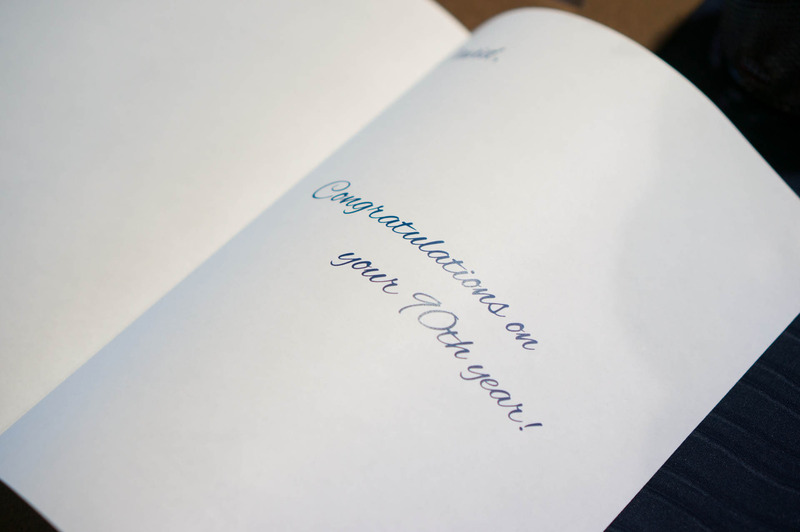 Congratulations on
your 90th year!